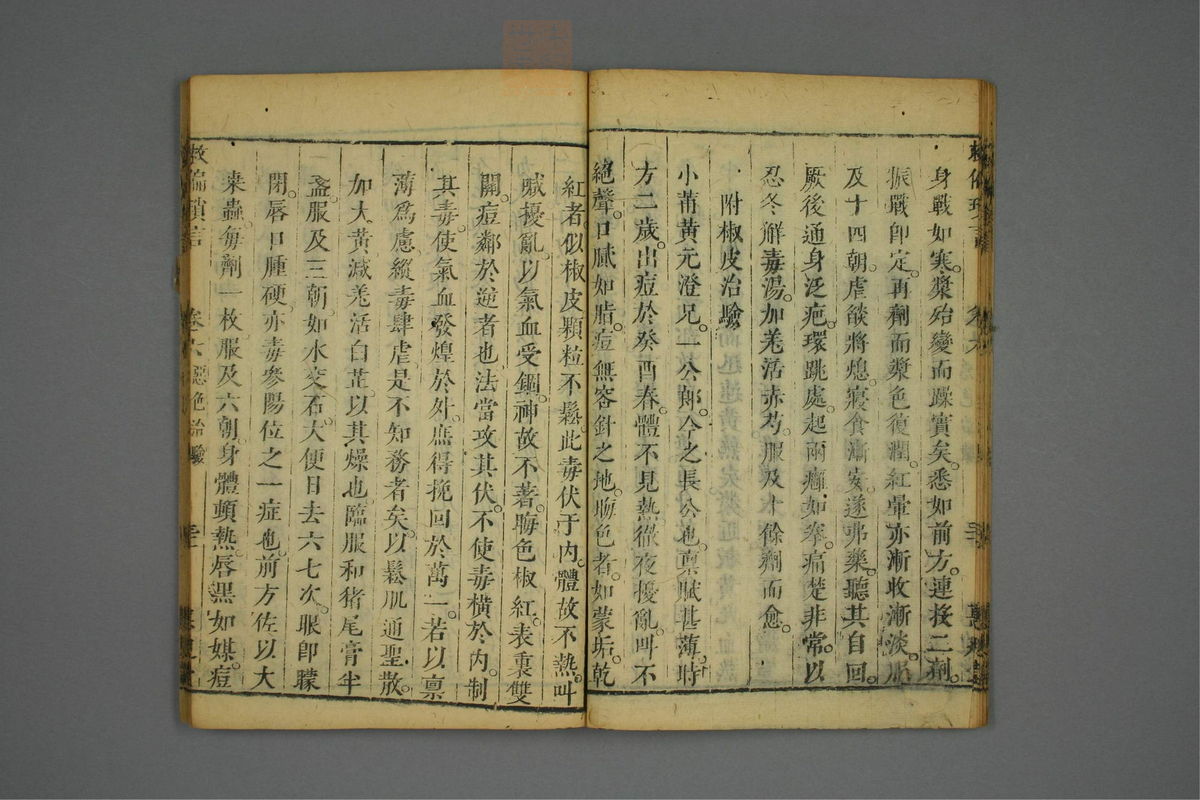 身戰如寒。漿殆變而躁實矣。悉如前方。連投二劑。
振戰卽定。再劑而漿色復潤。紅暈亦漸收漸淡。
及十四朝。虐燄將熄。寢食漸安。遂弗藥。聽其自回。
厥後通身泛疤。環跳處。起兩癰如拳。痛楚非常。以
忍冬解毒湯。加羌活赤芍。服及十餘劑而愈。
附椒皮治驗
小莆黃元澄兄。一公郞。今之長公也。稟賦甚薄。時
方二歲。出痘於癸酉春。體不見熱。徹夜擾亂。叫不
絕聲。口膩如脂。痘無容針之地。晦色者。如蒙垢。乾
紅者。似椒皮。顆粒不鬆。此毒伏于內。體故不熱。叫
號擾亂。以氣血受錮。神故不著。晦色椒紅。表裏雙
關。痘鄰於逆者也。法當攻其伏。不使毒橫於內。制
其毒。使氣血發煌於外。庶得挽回於萬一。若以稟
薄爲慮。縱毒肆虐。是不知務者矣。以鬆肌通聖散。
加大黃。減羌活白芷。以其燥也。臨服和猪尾膏半
盞。服及三朝。如水交石。大便日去六七次。眼卽朦
閉。唇口腫硬。亦毒參陽位之一症也。前方佐以大
桒蟲。每劑一枚。服及六朝。身體頓熱。唇黑如媒。痘
救偏瑣言
卷六 惡絕治驗